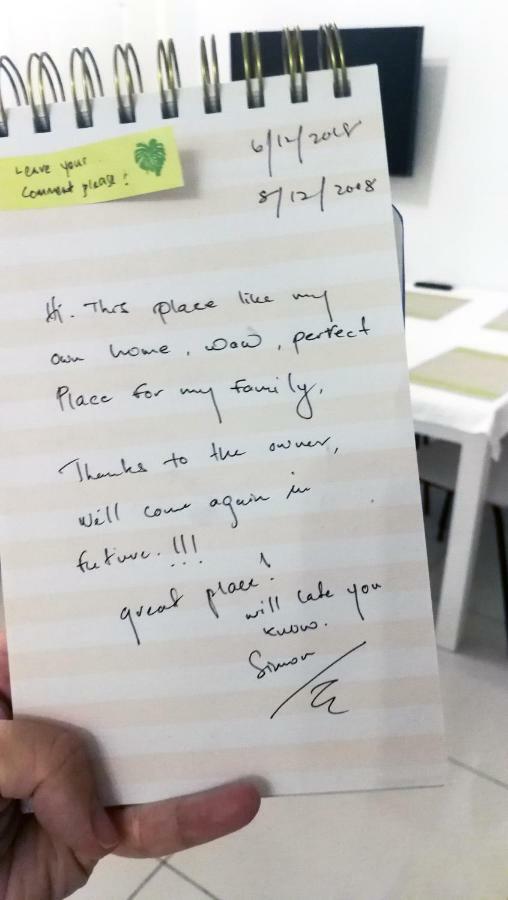 Leave your
comment please!
6/12/2018
8/12/2008
Hi. This place like my
own home, wow, perfect
Place for my family,
Thanks to the owner,
will come again in
future. !!!
great place!
will late you
know.
Simon